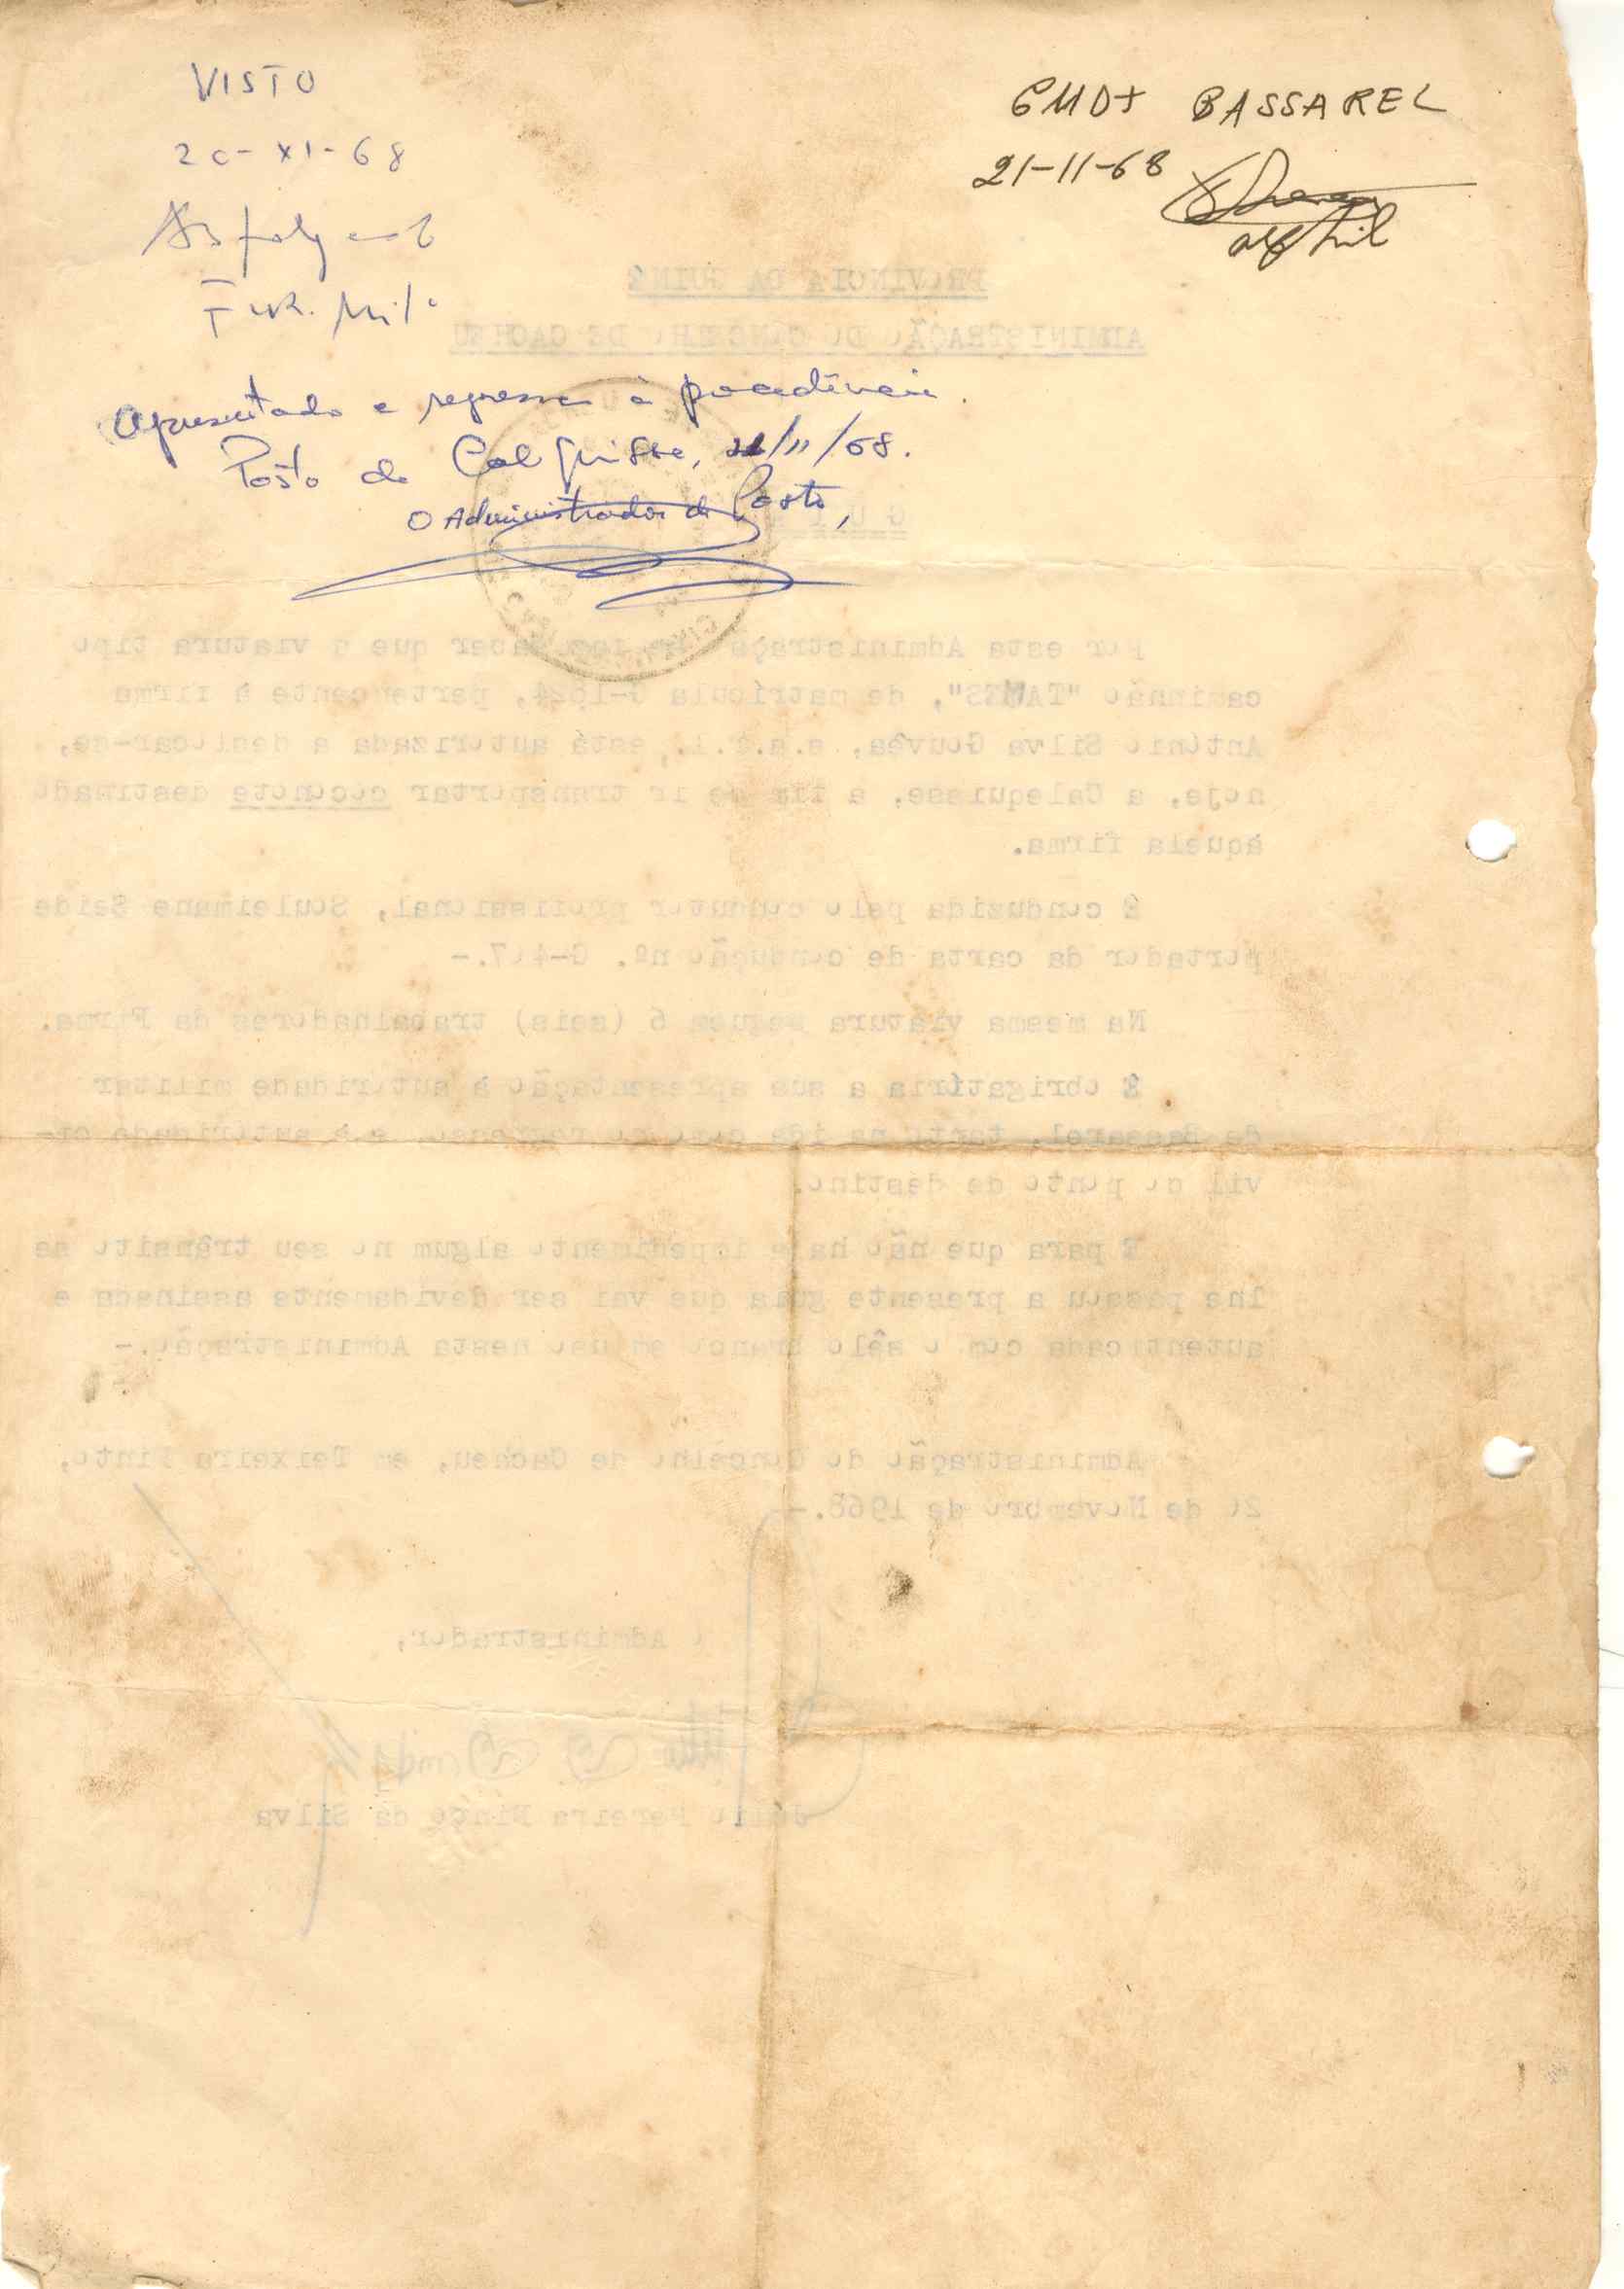 VISTO
20-XI-68
Fur. Mil.
CMDT BASSAREL
21-11-68
alf mil
Apresentado e regressa à procedência.
Posto de Calequisse, 21/11/68.
O Administrador do Posto,
PROVÍNCIA DA GUINÉ
ADMINISTRAÇÃO DO CONCELHO DE CACHEU
GUIA
Por esta Administração se faz saber que a viatura tipo
caminhão "TAMES", de matrícula pertencente à firma
António Silva Gouvêa, s.a.r.l., está autorizada a deslocar-se,
hoje, a Calequisse, a fim de ir transportar coconote destinado
àquela firma.
É conduzida pelo condutor profissional, Souleimane Seide
portador da carta de condução nº. G-407.-
Na mesma viatura seguem 6 (seis) trabalhadores da Firma.
É obrigatíria a sua apresentação à autoridade militar
de Bassarel, tanto na ida como no regresso, e à autoridade ci-
vil do ponto de destino.
E para que não haja impedimento algum no seu trânsito se
lhe passou a presente guia que vai ser devidamente assinada e
autenticada com o sêlo branco em uso nesta Administração.-
Administração do Concelho de Cacheu, em Teixeira Pinto,
20 de Novembro de 1968.-
O Administrador,
Pereira da Silva